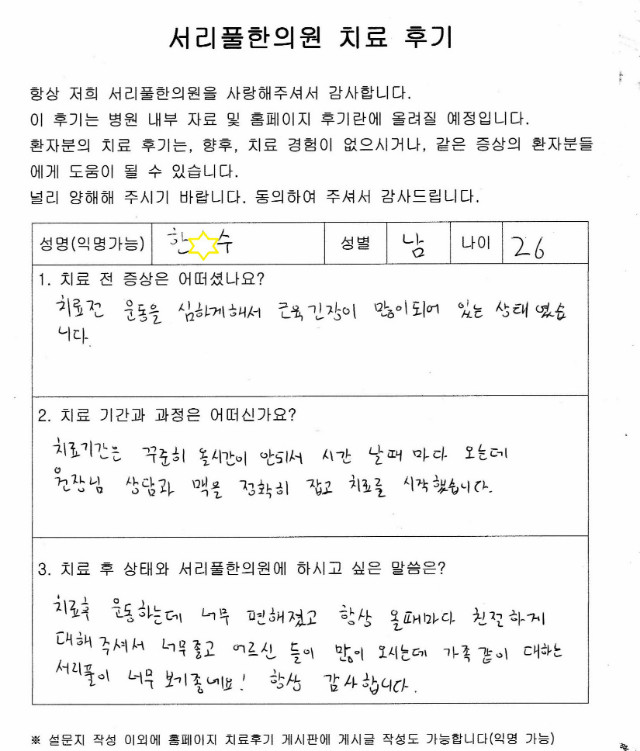 서리풀한의원 치료 후기
항상 저희 서리풀한의원을 사랑해주셔서 감사합니다.
이 후기는 병원 내부 자료 및 홈페이지 후기란에 올려질 예정입니다.
환자분의 치료 후기는, 향후, 치료 경험이 없으시거나, 같은 증상의 환자분들
에게 도움이 될 수 있습니다.
널리 양해해 주시기 바랍니다. 동의하여 주셔서 감사드립니다.
성명(익명가능) 한 수 성별 남 나이 26
1. 치료 전 증상은 어떠셨나요?
치료전 운동을 심하게해서 근육긴장이 많이되어 있는 상태였습
니다.
2. 치료 기간과 과정은 어떠신가요?
치료기간은 꾸준히 올시간이 안되서 시간 날때 마다 오는데
원장님 상담과 맥을 정확히 잡고 치료를 시작했습니다.
3. 치료 후 상태와 서리풀한의원에 하시고 싶은 말씀은?
치료후 운동하는데 너무 편해졌고 항상 올때마다 친절하게
대해주셔서 너무좋고 어르신 들이 많이 오시는데 가족같이 대하는
서리풀이 너무 보기좋네요! 항상 감사합니다.
※ 설문지 작성 이외에 홈페이지 치료후기 게시판에 게시글 작성도 가능합니다(익명 가능)